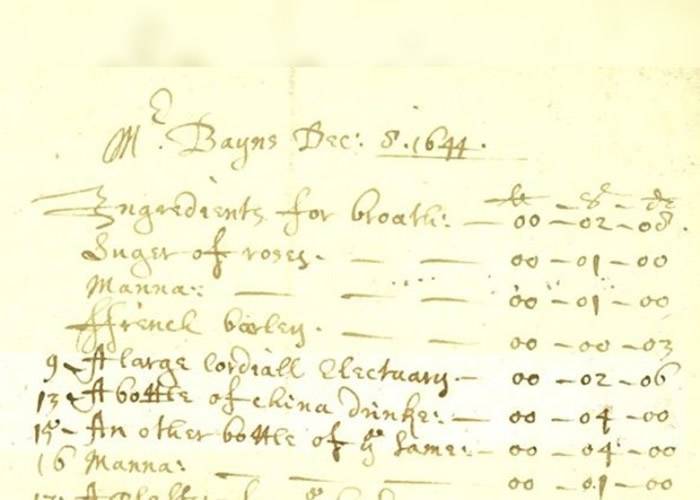 Mr. Bayns Dec: 8. 1644.
li — s — d
Ingredients for broath: — 00 — 02 — 08.
Suger of roses. — — 00 — 01 — 00
Manna: — — — 00 — 01 — 00
ffrench barley. — — 00 — 00 — 03
9 — A large cordiall Electuary — 00 — 02 — 06
13 — A bottle of china drinke: — 00 — 04 — 00
15 — An other bottle of ye same: — 00 — 04 — 00
16 Manna: — — — 00 — 01 — 00